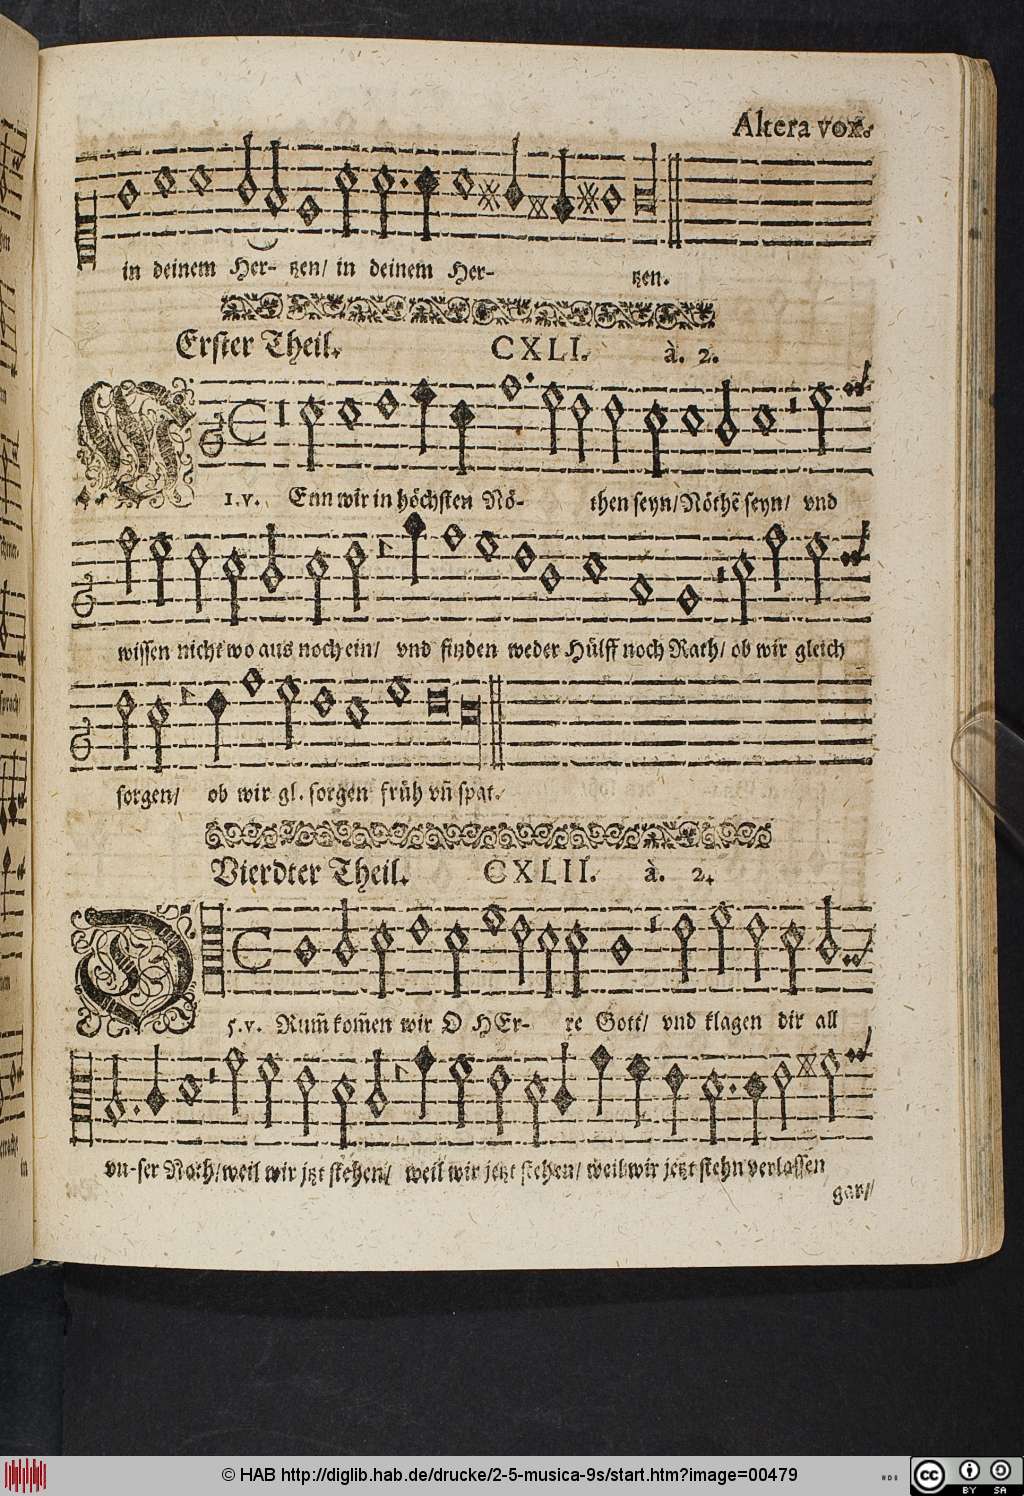 Altera vox.
in deinem Her- tzen/ in deinem Her- tzen.
Erster Theil. CXLI. à. 2.
W
1.v. Enn wir in höchsten Nö- then seyn/ Nöthẽ seyn/ vnd
wissen nicht wo aus noch ein/ vnd finden weder Hülff noch Rath/ ob wir gleich
sorgen/ ob wir gl. sorgen früh vñ spat.
Vierdter Theil. CXLII. à. 2.
D
5.v. Rum̃ kom̃en wir O HEr- re Gott/ vnd klagen dir all
vn-ser Noth/ weil wir jtzt stehen/ weil wir jetzt stehen/ weil wir jetzt stehn verlassen
gar/
© HAB http://diglib.hab.de/drucke/2-5-musica-9s/start.htm?image=00479
cc BY SA